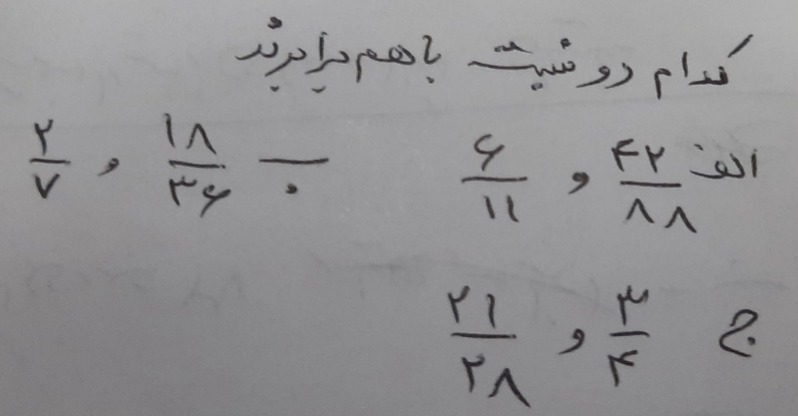 کدام دو نسبت با هم برابرند
الف ۴۲/۸۸ و ۶/۱۱ ب ۱۸/۳۶ و ۲/۷
ج ۳/۴ و ۲۱/۲۸